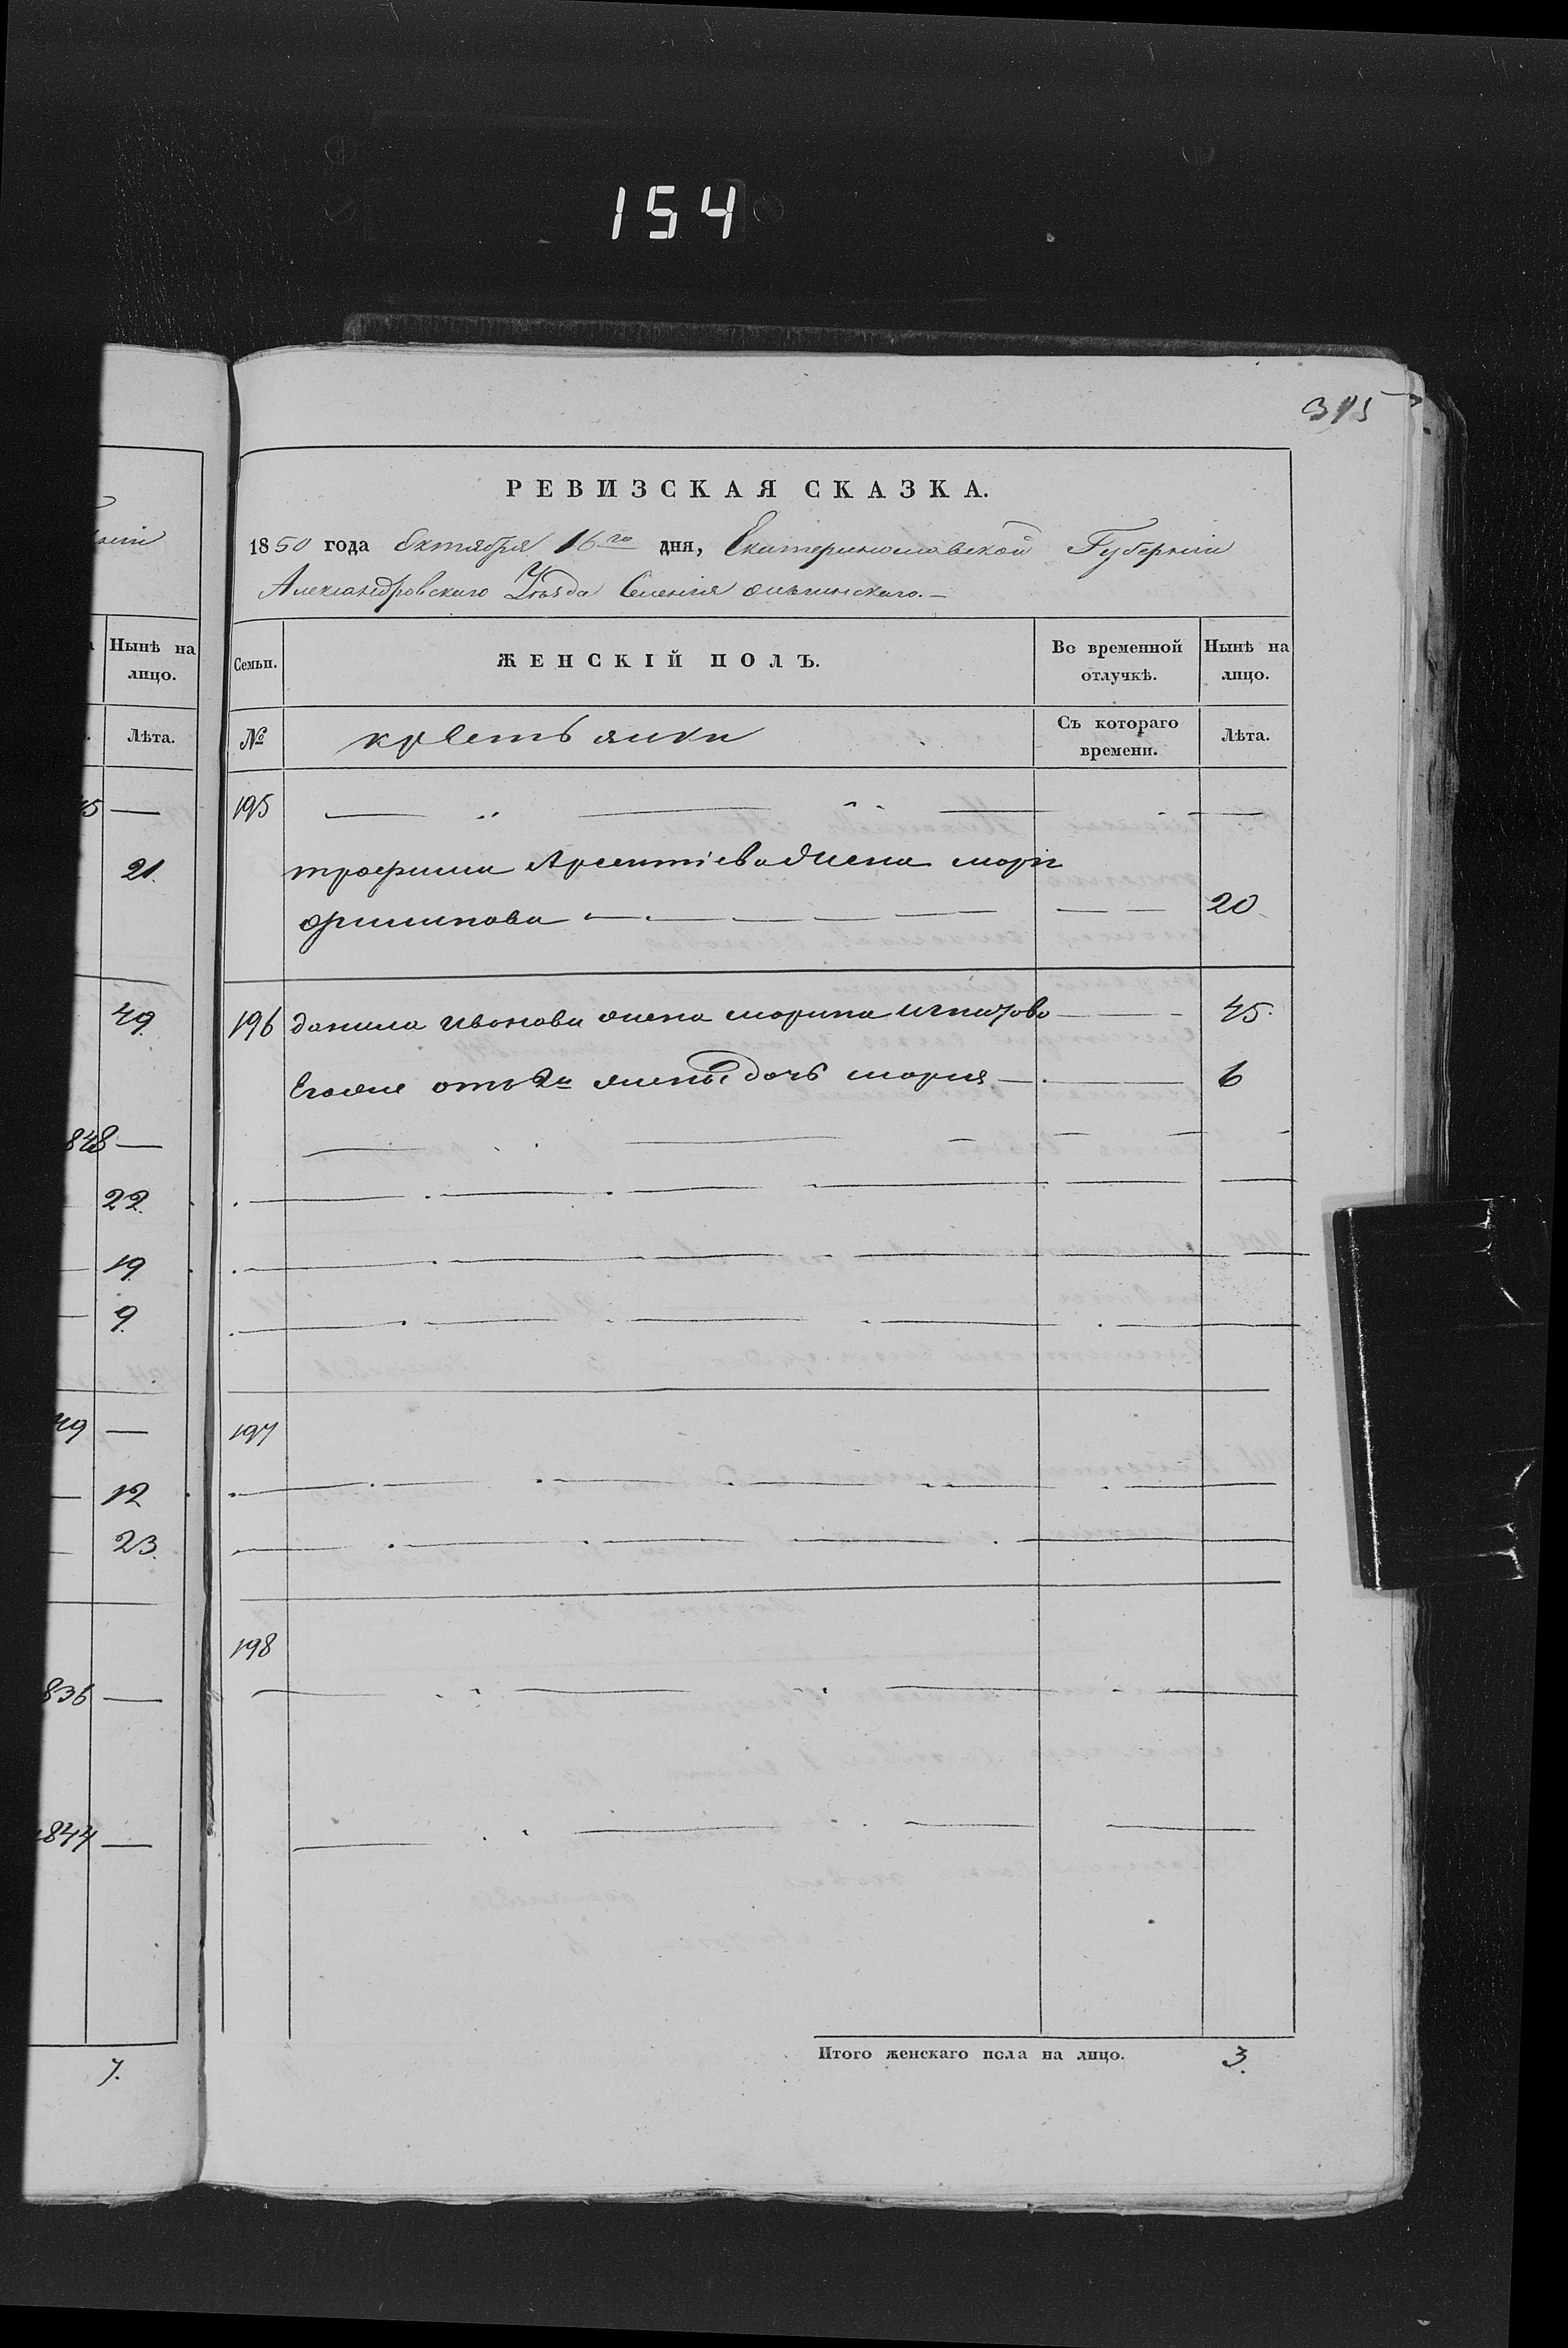 154
315
ній
РЕВИЗСКАЯ СКАЗКА.
1850 года Октября 16го дня, Екатеринославской Губерніи
Александровскаго Уѣзда Селенія
Нынѣ на лицо.
Семьи.
ЖЕНСКІЙ ПОЛЪ.
Во временной отлучкѣ.
Нынѣ на лицо.
Лѣта.
№
крестьянки
Съ котораго времени.
Лѣта.
45 —
195 — — — —
21.
трофима Арсентіева жена марія
20
49.
196 данила иванова жена марина игнатова — — 45.
Егоже отъ 2й жены дочь мария — — 6
848 —
22.
19.
9.
49 —
197
12
23.
198
836 —
1844 —
Итого женскаго пола на лицо. 3.
7.